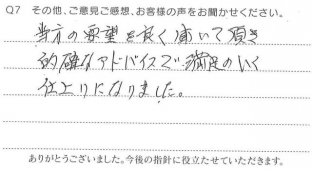 Q7 その他、ご意見ご感想、お客様の声をお聞かせください。
当方の要望を良く聞いて頂き
的確なアドバイスで満足のいく
仕上りになりました。
ありがとうございました。今後の指針に役立たせていただきます。